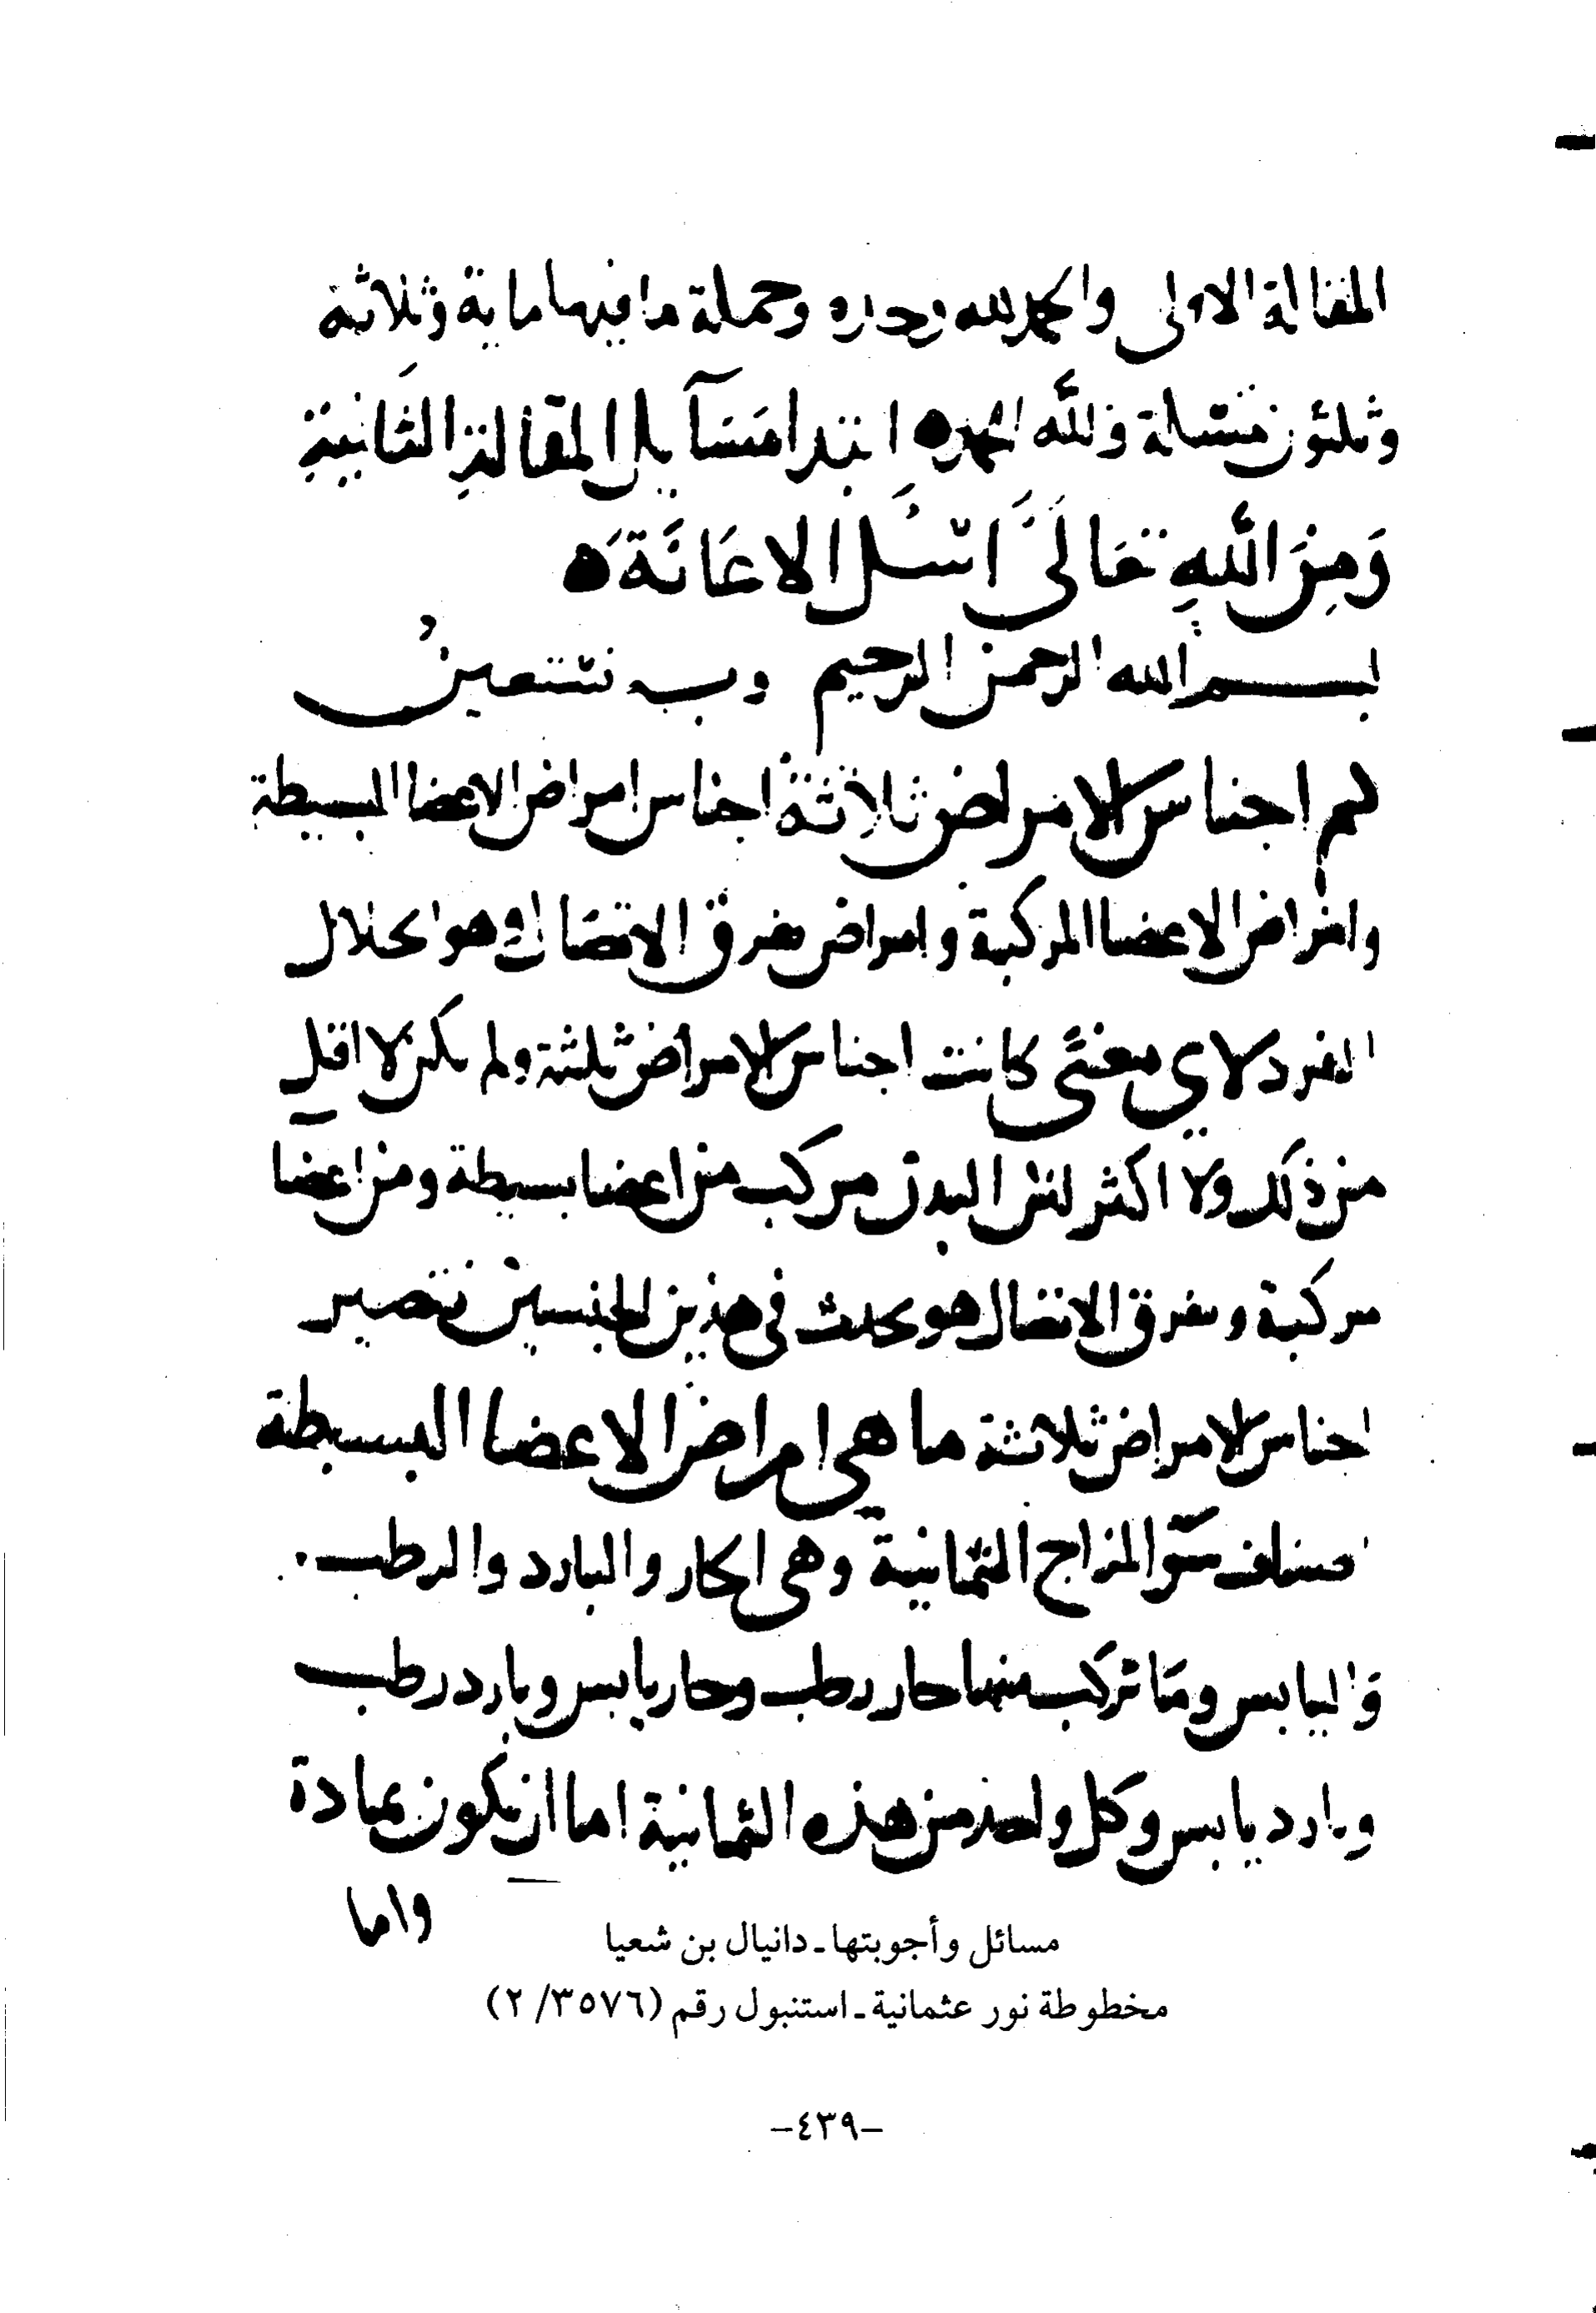 المقالة الاولى والحمد لله وحده وجملة ما فيها ماية وثلاثة
وثلثون مسئلة ولله الحمد ه ابتدا مسآيل المقالة الثانية
وَمِنَ اللهِ تعَالىَ اسئل الاعَانَةَ ه
بسم الله الرحمن الرحيم وبه نستعين
كم اجناس الامراض ثلاثة اجناس امراض الاعضا البسيطة
وامراض الاعضا المركبة وامراض تفرق الاتصال وهو انحلال
الفرد لاي معنى كانت اجناس الامراض ثلثة ولم تكن لا اقل
من ذلك ولا اكثر لئن البدن مركب من اعضا بسيطة ومن اعضا
مركبة وتفرق الاتصال هو يحدث في هذين الجنسين فتصير
اجناس الامراض ثلاثة ما هي امراض الاعضا البسيطة
اصناف سوّ المزاج الثمانية وهي الحار والبارد والرطب
واليابس وما تركب منها حار رطب وحار يابس وبارد رطب
وبارد يابس وكل واحد من هذه الثمانية اما ان تكون بمادة
واما
مسائل وأجوبتها ـ دانيال بن شعيا
مخطوطة نور عثمانية ـ استنبول رقم (٣٥٧٦/ ٢)
–٤٣٩–